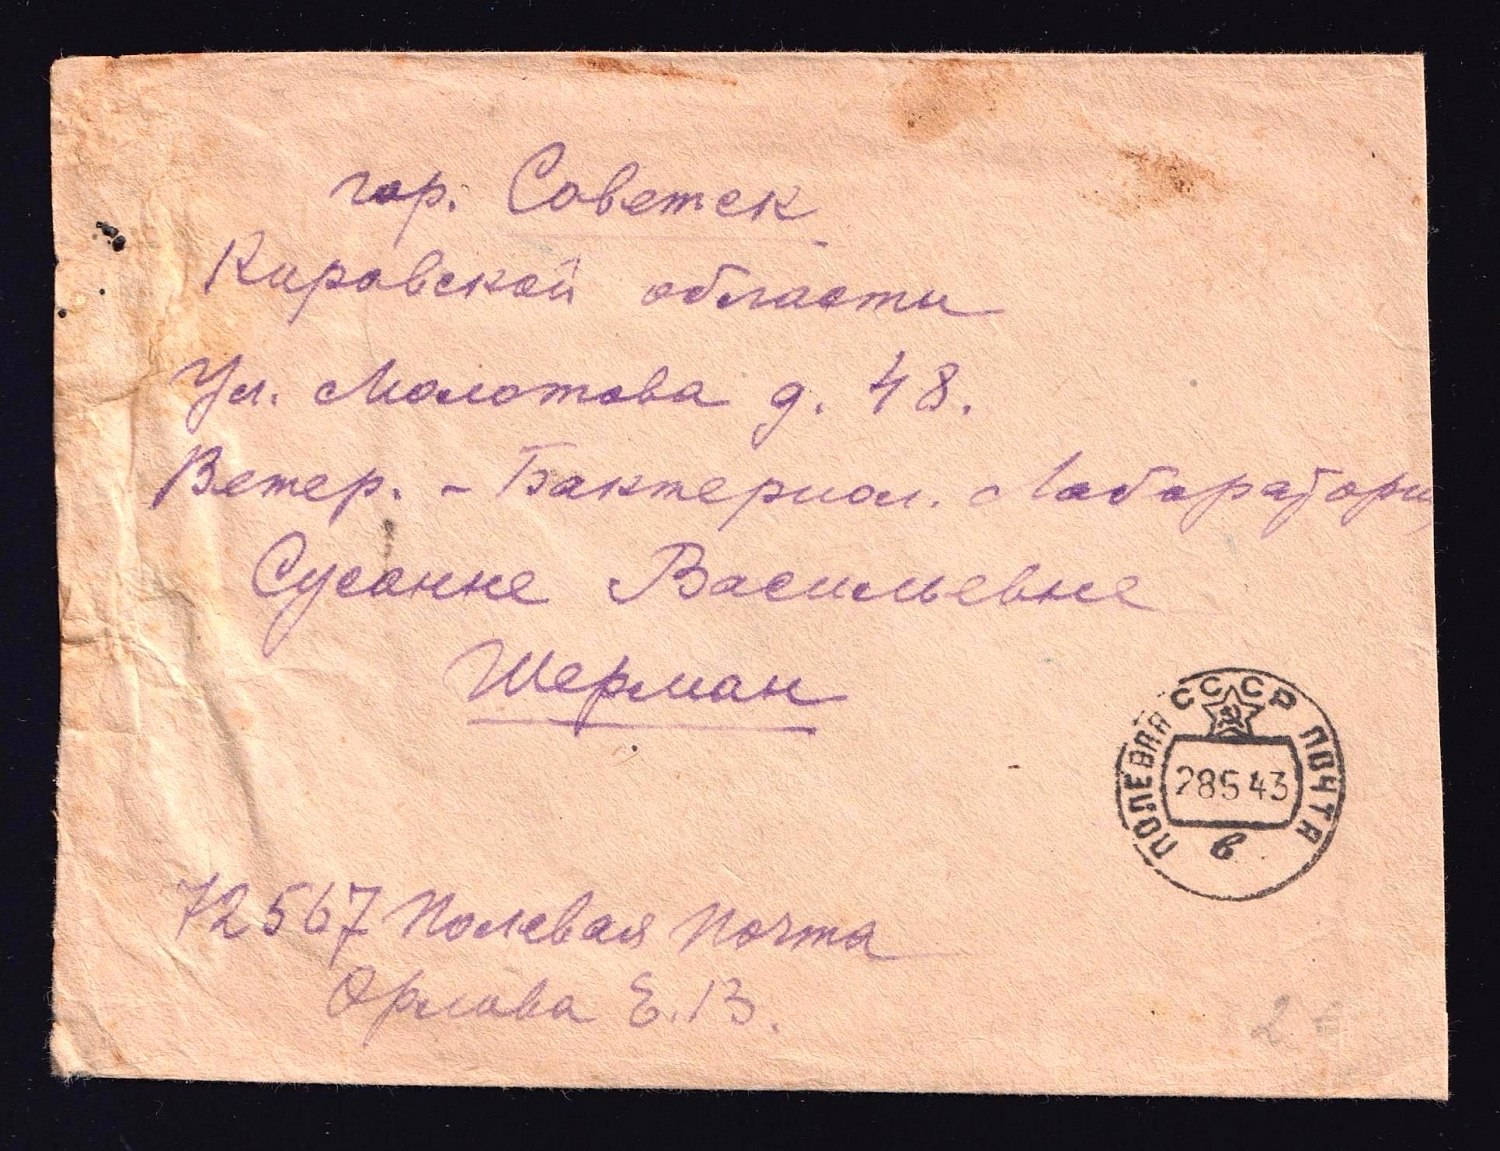 гор. Советск
Кировской области
Ул. Молотова д. 48.
Ветер. - Бактериол. Лаборатори
Сусанне Васильевне
Шерман
СССР
ПОЛЕВАЯ ПОЧТА
28 5 43
в
72567 Полевая Почта
Орлова Е. В.
2